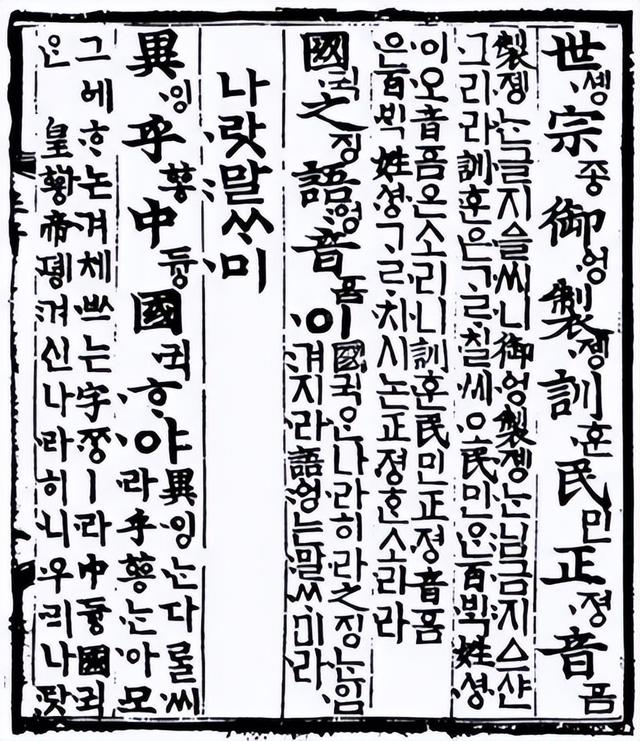 世솅宗종御엉製졩訓훈民민正졍音ᅙᅳᆷ
製졩는글지ᅀᅳᆯ씨니御엉製졩는님금지ᅀᅳ샨
그리라訓훈은ᄀᆞᄅᆞ칠씨오民민은百ᄇᆡᆨ姓셩
이오音ᅙᅳᆷ은소리니訓훈民민正졍音ᅙᅳᆷ
은百ᄇᆡᆨ姓셩ᄀᆞᄅᆞ치시논正졍ᄒᆞᆫ소리라
國귁之징語엉音ᅙᅳᆷ이國귁ᄋᆞᆫ나라히라之징는입
겨지라語엉는말ᄊᆞ미라
나랏말ᄊᆞ미
異잉乎ᅘᅩᆼ中듕國귁ᄒᆞ야異잉는다ᄅᆞᆯ씨
라乎ᅘᅩᆼ는아모
그ᅌᅦᄒᆞ논겨체ᄡᅳ는字ᄍᆞᆼㅣ라中듕國귁
ᄋᆞᆫ皇ᅘᅪᆼ帝뎽겨신나라히니우리나랏